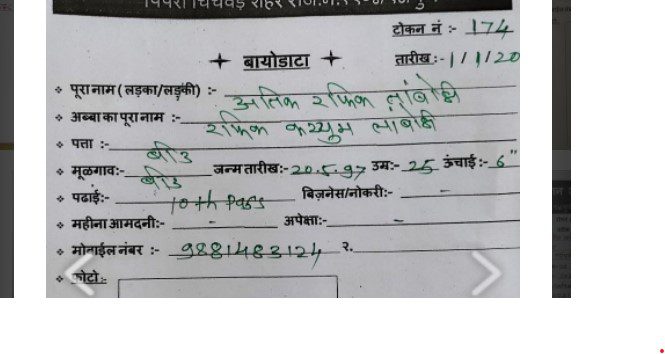 टोकन नं :- 174
+ बायोडाटा + तारीख :- 1/1/20
❖ पूरा नाम (लड़का/लड़की) :- अतिक रफिक तांबोळी
❖ अब्बा का पूरा नाम :- रफिक कय्युम तांबोळी
❖ पत्ता :- बीड
❖ मूळगाव:- बीड जन्म तारीख:- 20.5.97 उम्र:- 25 ऊंचाई :- 6"
❖ पढाई:- 10th Pass बिज़नेस/नोकरी:- -
❖ महीना आमदनी:- - अपेक्षा:- -
❖ मोबाईल नंबर :- 9881483124 २.
❖ फोटो:-